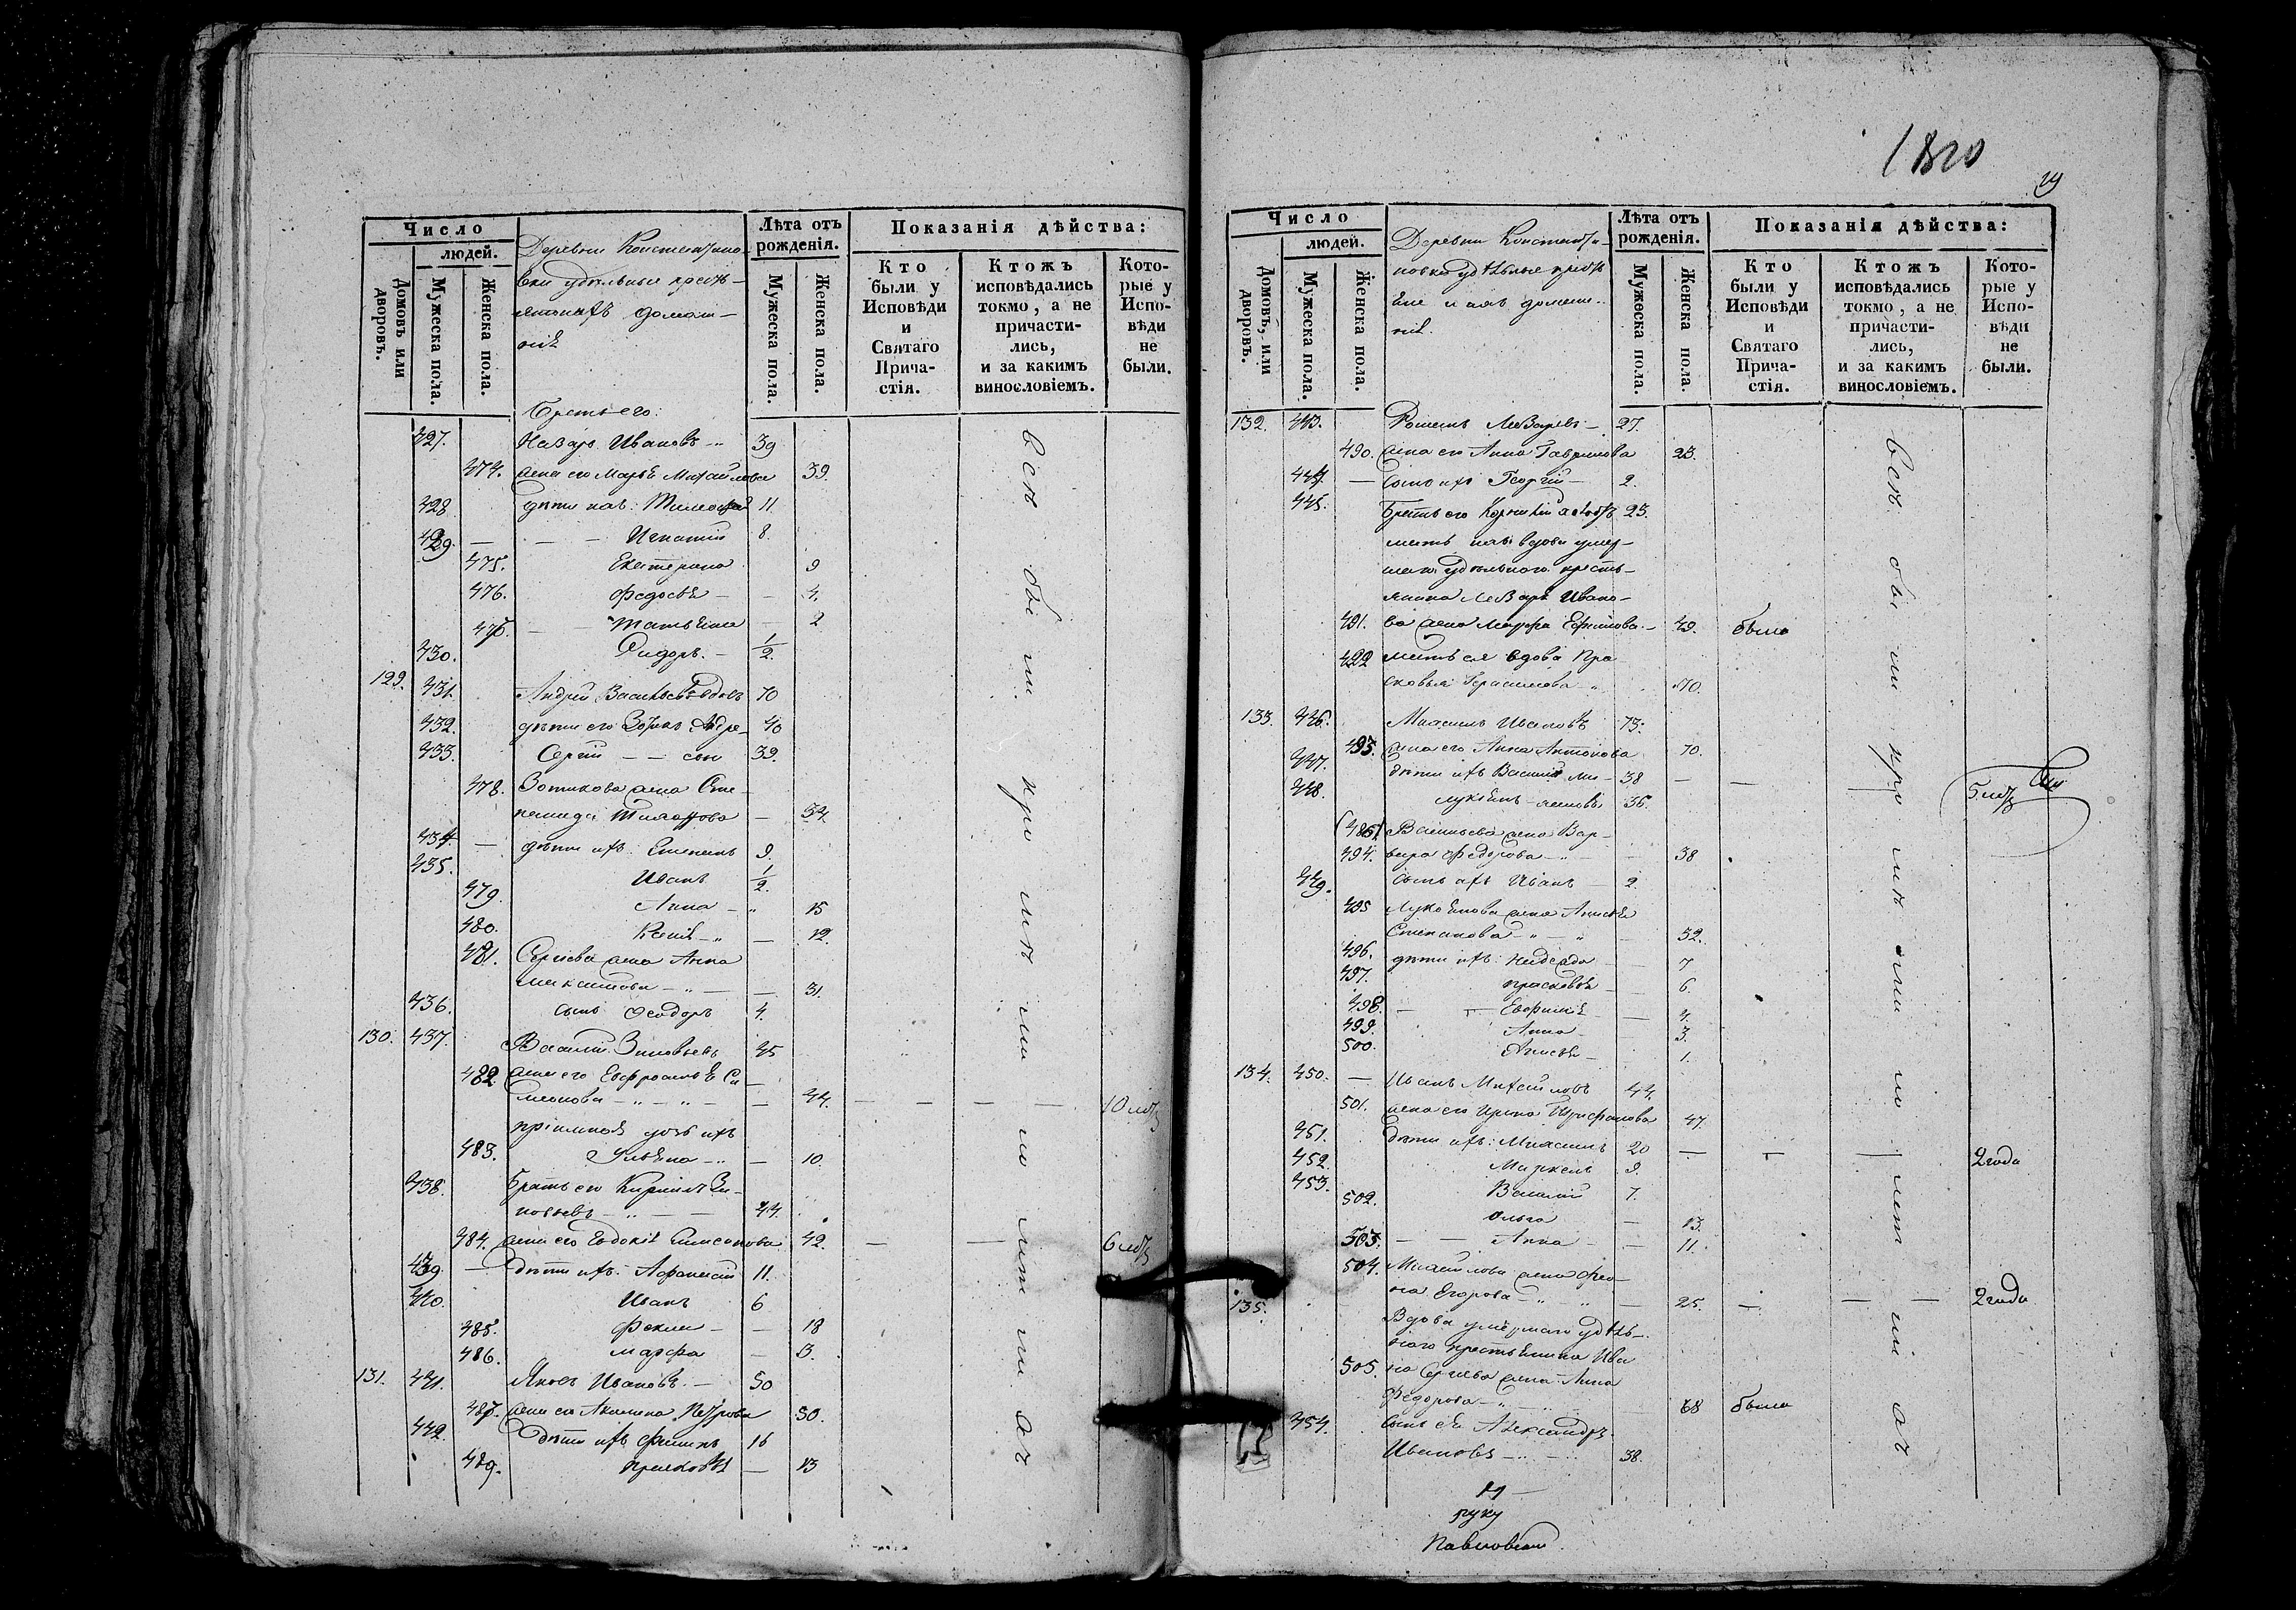 Число
людей.
Домовъ или дворовъ.
Мужеска пола.
Женска пола.
Деревни Константино-
вки удѣльные кресть-
яне и ихъ домаш-
ніе
Лѣта отъ рожденія.
Мужеска пола.
Женска пола.
Показанія дѣйства:
Кто были у Исповѣди и Святаго Прича-стія.
Ктожъ исповѣдались токмо, а не причасти-лись, и за какимъ винословіемъ.
Кото-рые у Испо-вѣди не были.
Братъ его:
427. Назаръ Ивановъ 39
474. жена его Марья Михайлова 39.
428 дѣти ихъ: Тимофей 11.
429. Игнатій 8.
475. Екатерина 9
476. Федосья 4.
Татьяна 2
430. Сидоръ. 1/2.
129. 431. Андрей Васильевъ вдовъ 70
432. дѣти его Зотикъ Андре- 40
433. Сергій сынъ 39.
478. Зотикова жена Сте-
панида 34.
434. дѣти ихъ: Степанъ 9.
435. Иванъ 1/2.
479. Анна 15
480. Ксенія 12.
481. Сергіева жена Анна
Максимова 31.
436. сынъ Феодоръ 4.
130. 437. Василій Зиновьевъ 45
482. жена его Евфросинья Си-
меонова 44. 10 лѣтъ
пріемная дочь ихъ
483. Ульяна 10.
438. Братъ его Кирилъ Зи-
новьевъ 44.
484. жена его Евдокія 42. 6 лѣтъ
439 дѣти ихъ: Афанасій 11.
440. Иванъ 6
485. Фекла 18
486. Марфа 3.
131. 441. Яковъ Ивановъ. 50
487. жена его Акилина Петрова 50.
442. дѣти ихъ Филипъ 16
489. Прасковья 13
всѣ бы ли
1820
Число
людей.
Домовъ, или дворовъ.
Мужеска пола.
Женска пола.
Деревни Константи-
новки удѣльные кресть
яне и ихъ домаш-
ніе.
Лѣта отъ рожденія.
Мужеска пола.
Женска пола.
Показанія дѣйства:
Кто были у Исповѣди и Святаго Прича-стія.
Ктожъ исповѣдались токмо, а не причасти-лись, и за какимъ винословіемъ.
Кото-рые у Испо-вѣди не были.
132. 443. Романъ Лазаревъ 27.
490. жена его Анна Гаврилова 23.
444. сынъ ихъ Георгій 2.
445. Братъ его Корнилій холостъ 23.
мать ихъ вдова умер-
шаго удѣльнаго кресть-
янина Лазаря Ивано-
491. ва жена Марфа Ефимова 49. была
492 мать ея вдова Пра
сковья Герасимова 70.
133. 446. Михаилъ Ивановъ 73.
493. жена его Анна Антонова 70.
447. дѣти ихъ Василій Ми- 38 5 лѣтъ
448. Лукьянъ хаиловы 36.
Васильева жена Вар-
494. вара Федорова 38
449. сынъ ихъ Иванъ 2.
495 Лукьянова жена Анисья
Степанова 32.
496. дѣти ихъ: 7
497. Прасковья 6.
498. Евфимія 4.
499. Анна 3.
500. Анисья 1.
134. 450. Иванъ Михаиловъ 44.
501. жена его Ирина Трифонова 47.
451. дѣти ихъ: Михаилъ 20 2 года
452. Маркелъ 9.
453. Василій 7.
502. Ольга 13.
503. Анна 11.
504. Михаилова жена
Егорова 25. 2 года
135. Вдова умершаго удѣль-
наго крестьянина Ива
505. на Сергѣева жена Анна
Федорова 68 была
454. сынъ ея Александръ
Ивановъ 38.
всѣ бы ли
руку